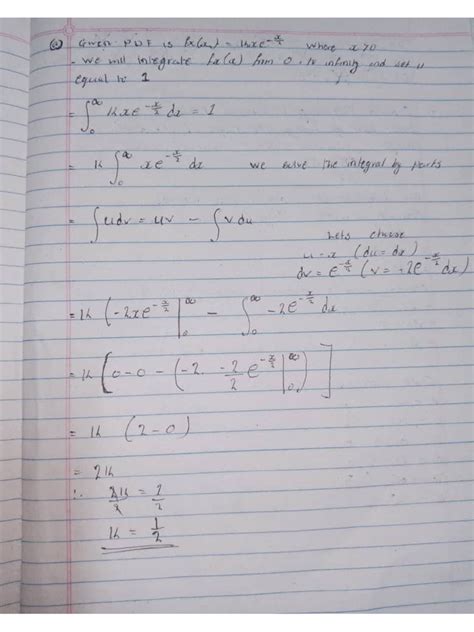 (a) Given PDF is fx(x) = kxe^{-x/2} where x>0
- we will integrate fx(x) from 0 to infinity and set it
equal to 1
= ∫_0^∞ kxe^{-x/2} dx = 1
= k ∫_0^∞ xe^{-x/2} dx we solve the integral by parts
= ∫udv = uv - ∫vdu
Lets choose
u=x (du=dx)
dv = e^{-x/2} (v = -2e^{-x/2} dx)
= k (-2xe^{-x/2} |_0^∞ - ∫_0^∞ -2e^{-x/2} dx
= k [0-0 - (-2 -2/2 e^{-x/2} |_0^∞)]
= k (2-0)
= 2k
∴ 2k/2 = 1/2
k = 1/2